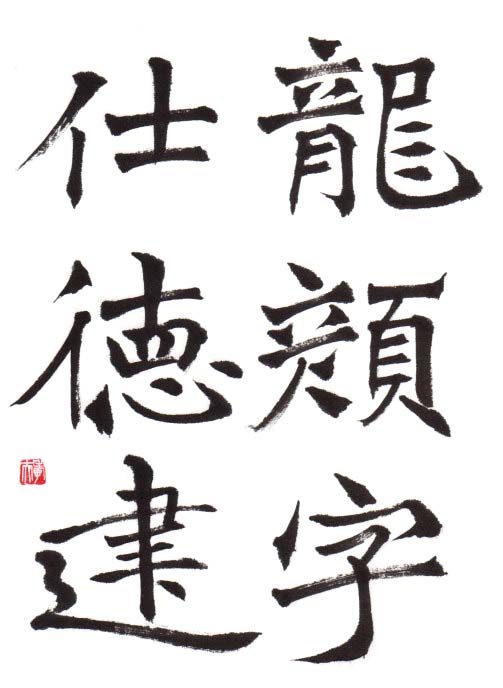 龍顏字
仕徳建